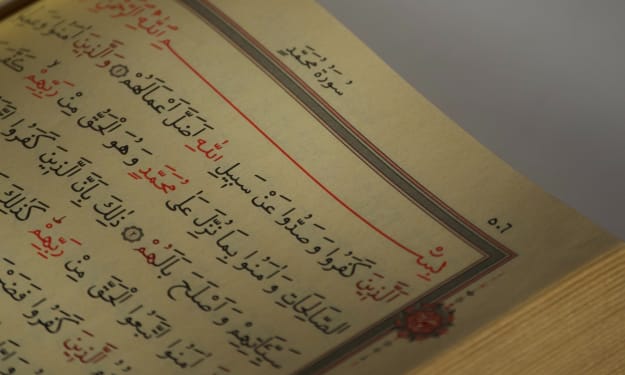 سُورَةُ مُحَمَّدٍ
٥٠٦
بِسْمِ اللّٰهِ الرَّحْمٰنِ
اَلَّذ۪ينَ كَفَرُوا وَصَدُّوا عَنْ سَب۪يلِ اللّٰهِ اَضَلَّ اَعْمَالَهُمْ ١ وَالَّذ۪ينَ اٰمَنُوا
الصَّالِحَاتِ وَاٰمَنُوا بِمَا نُزِّلَ عَلٰى مُحَمَّدٍ وَهُوَ الْحَقُّ مِنْ رَبِّهِمْ كَفَّرَ
سَيِّـَٔاتِهِمْ وَاَصْلَحَ بَالَهُمْ ٢ ذٰلِكَ بِاَنَّ الَّذ۪ينَ كَفَرُوا
اٰمَنُوا اتَّبَعُوا الْحَقَّ مِنْ رَبِّهِمْ كَذٰلِكَ
الَّذ۪ينَ كَفَرُوا